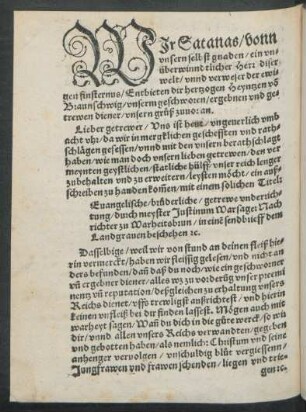 WJr Satanas/ vonn
vnsern selbst gnaden/ ein vn
überwinntlicher Herr diser
welt/ vnnd verweser der ewi
gen finsternus/ Entbieten dir hertzogen Heyntzen võ
Braunschwig/ vnserm geschwornen/ ergebnen vnd ge
trewen diener/ vnsern grůß zuuoran.
Lieber getrewer/ Vns ist heut/ vngeuerlich vmb
acht vhr/ da wir in mergklichen geschefften vnd rath
schlägen gesessen/ vnnd mit den vnsern berathschlagt
haben/ wie man doch vnsern lieben getrewen/ den ver
meynten geystlichen/ statliche hülff/ vnser reich lenger
zubehalten vnd zu erweitern/ leysten möcht/ ein auß-
schreiben zu handen kom̃en/ mit einem solichen Titel:
Euangelische/ brüderliche/ getrewe vnderrich
tung/ durch meyster Justinum Warsager Nach
richter zu Warheitbrun/ in eine sendbrieff dem
Landgrauen beschehen ꝛc.
Dasselbige/ weil wir von stund an deinen fleiß hier
in vermerckt/ haben wir fleissig gelesen/ vnd nicht an
ders befunden/ dañ daß du noch/ wie ein geschworner
vñ ergebner diener/ alles wz zu vorderũg vnser preemi
nentz vñ reputation/ deßgleichen zu erhaltung vnsers
Reichs dienet/ vffs trewligst außrichtest/ vnd hierin
keinen vnfleiß bei dir finden lassest. Mögen auch mit
warheyt sagen/ Wañ du dich in die gůte werck/ so wir
dir/ vnnd allen vnsers Reichs verwandten/ gegeben
vnd gebotten haben/ als nemlich: Christum vnd seine
anhenger vervolgen/ vnschuldig blůt vergiessenn/
Jungfrawen vnd frawen schenden/ liegen vnd trie-
gen ꝛc-